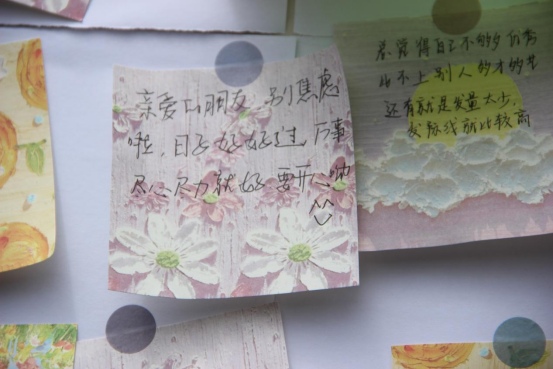 亲爱的朋友,别焦虑
啦,日子好好过,万事
尽心尽力就好 要开心呦
总觉得自己不够优秀
比不上别人的才的艺
还有就是发量太少,
发际线就比较高